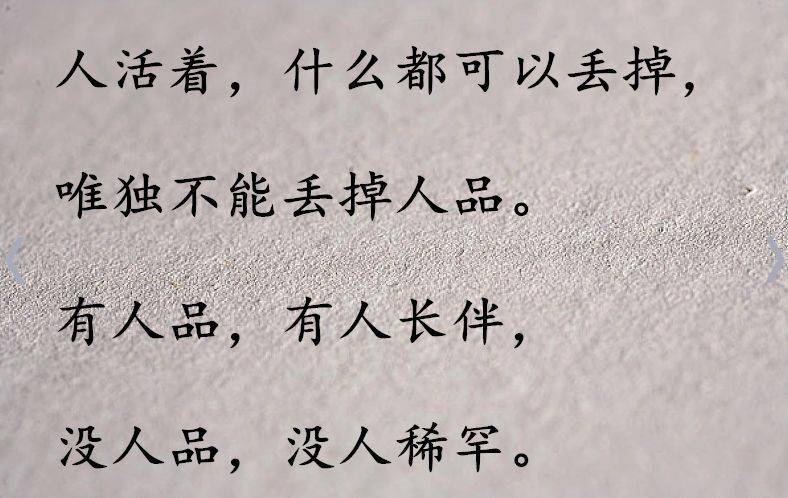 人活着，什么都可以丢掉，
唯独不能丢掉人品。
有人品，有人长伴，
没人品，没人稀罕。